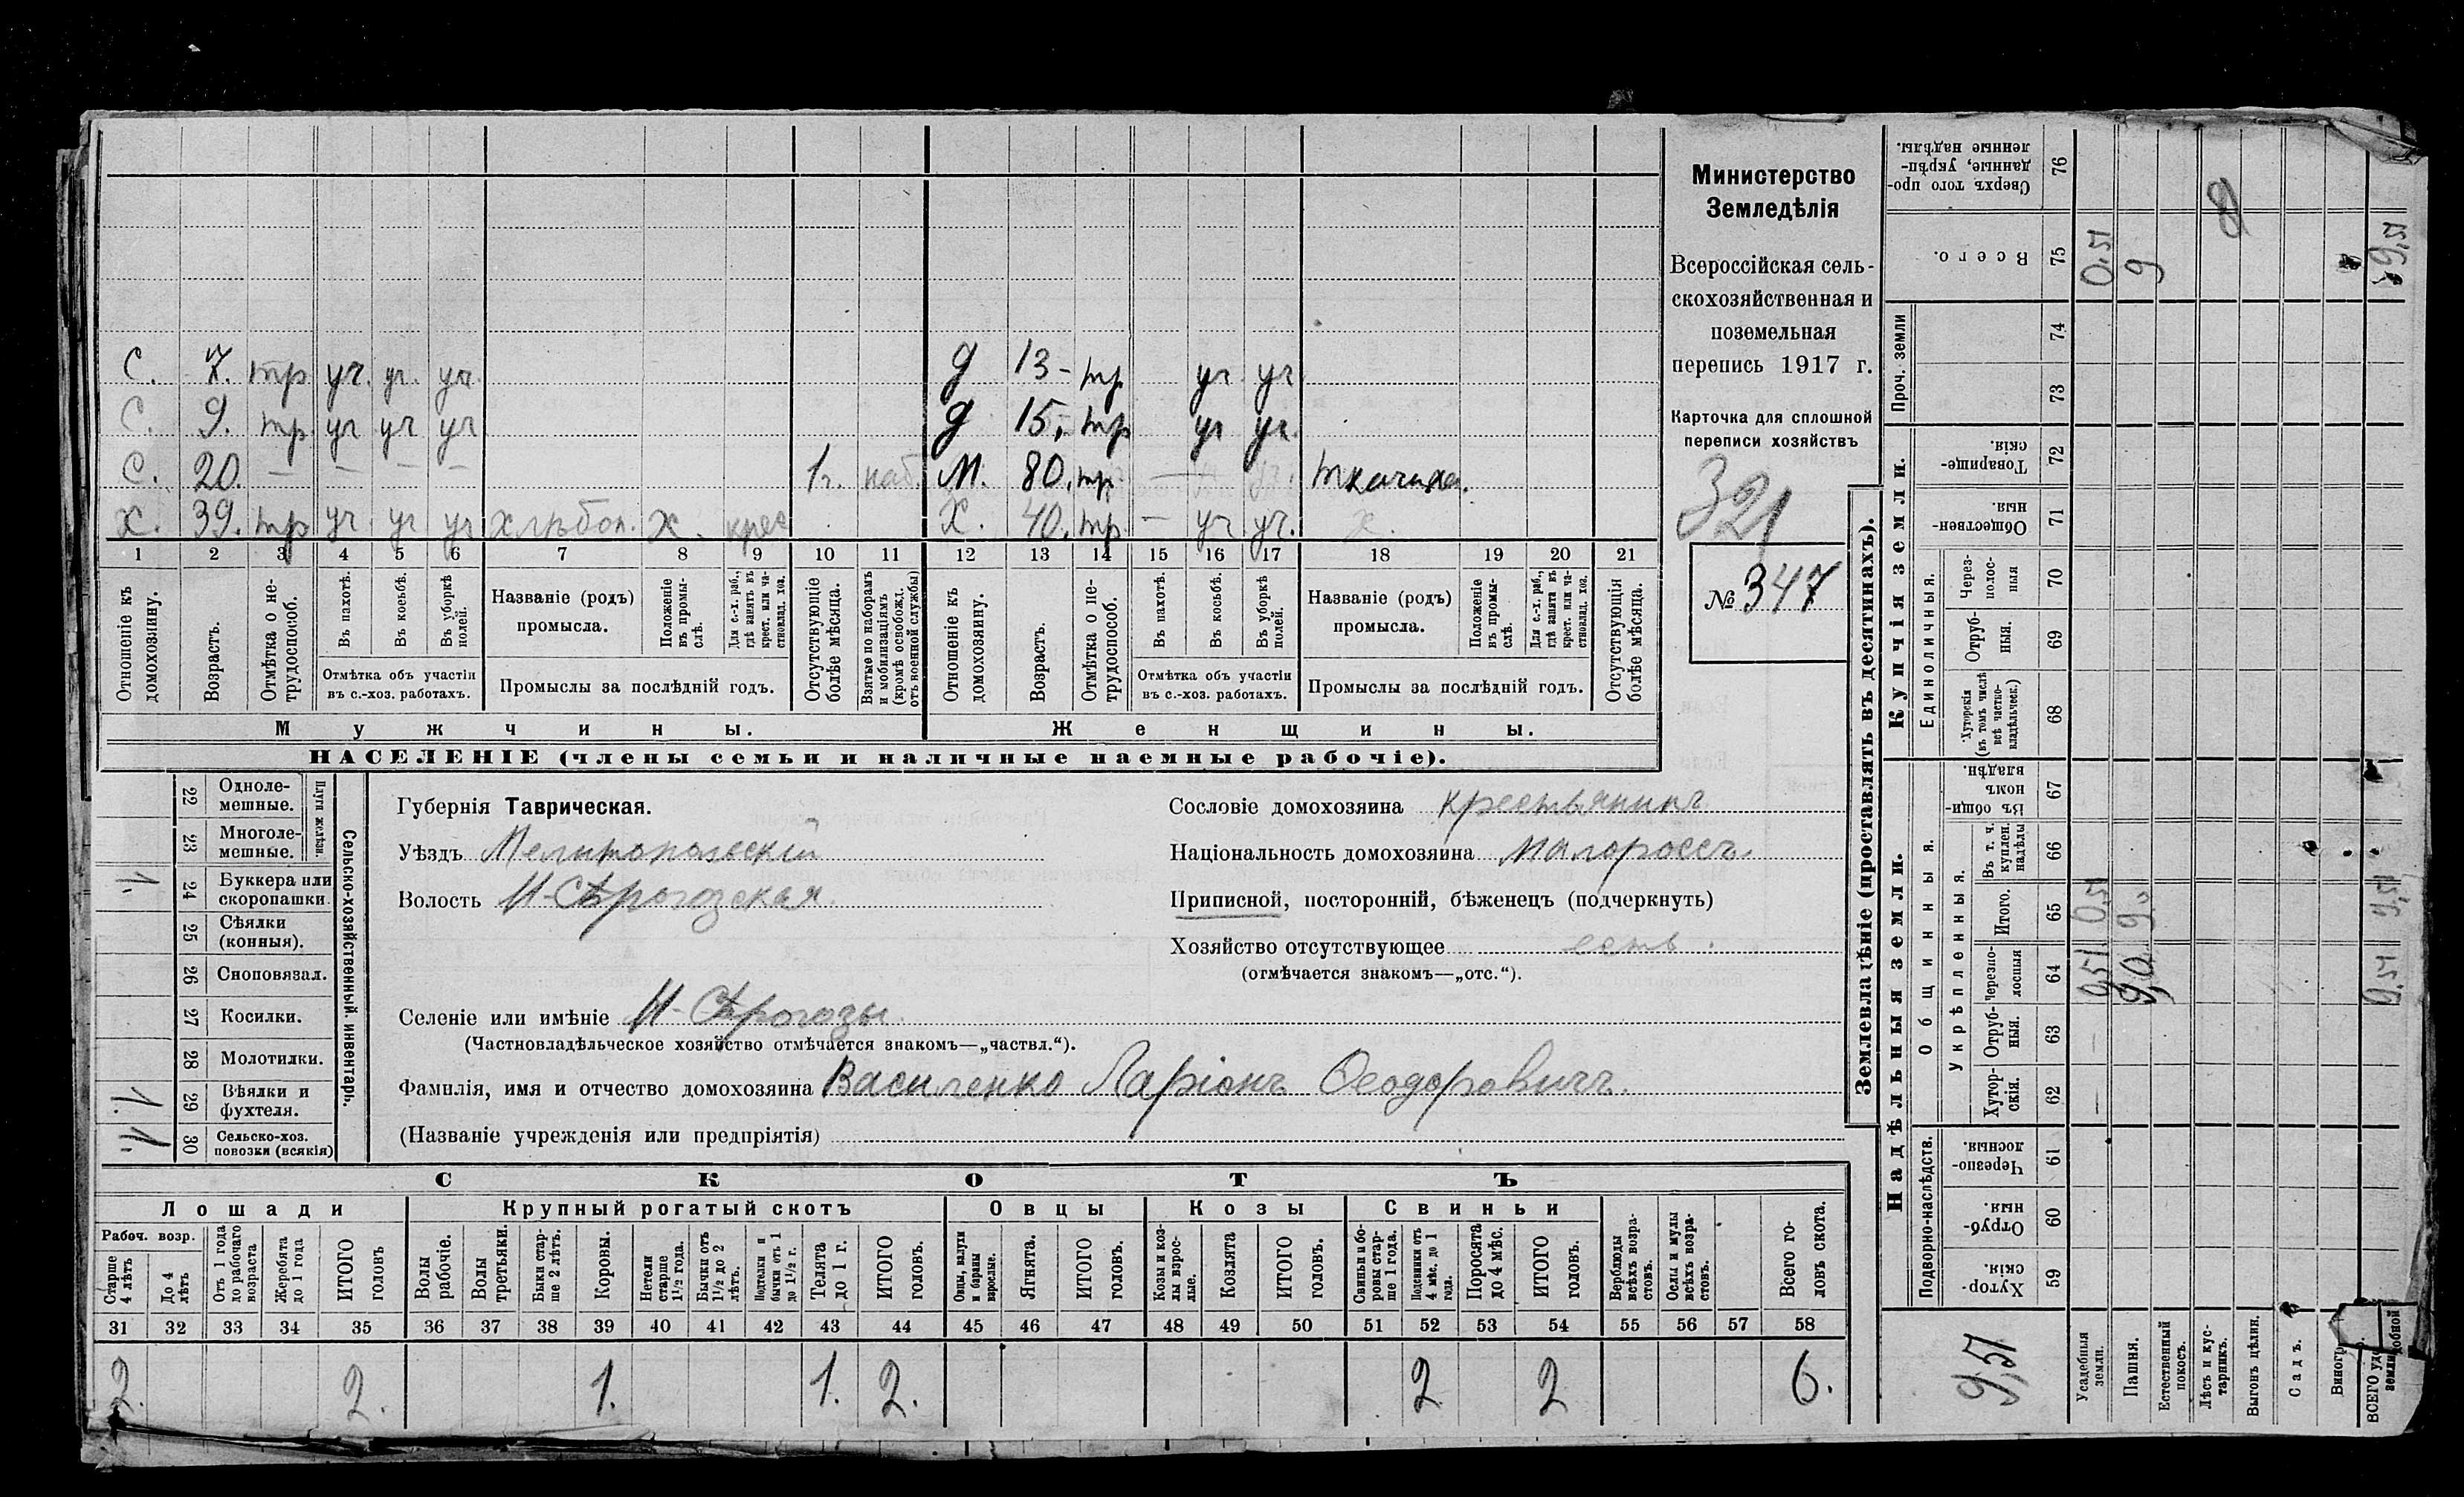 Министерство
Земледѣлія
Всероссійская сель-
скохозяйственная и
поземельная
перепись 1917 г.
Карточка для сплошной
переписи хозяйствъ
321
№ 347
С. 7. тр уч. уч. уч. д 13 - тр уч уч.
С. 9. тр. уч уч уч д 15, - тр уч уч.
С. 20. — — — — 1 г. наб. М. 80. тр. — ткачиха.
Х. 39. тр уч уч уч хлѣбоп. х. крес Х. 40. тр — уч уч. х.
1 2 3 4 5 6 7 8 9 10 11 12 13 14 15 16 17 18 19 20 21
Отношеніе къ домохозяину.
Возрастъ.
Отмѣтка о не-трудоспособ.
Въ пахотѣ.
Въ косьбѣ.
Въ уборкѣ полей.
Отмѣтка объ участіи
въ с.-хоз. работахъ.
Названіе (родъ)
промысла.
Положеніе въ промы-слѣ.
Для с.-х. раб., гдѣ занятъ въ крест. или ча-стновлад. хоз.
Промыслы за послѣдній годъ.
Отсутствующіе болѣе мѣсяца.
Взятые по наборамъ и мобилизаціямъ (кромѣ освобожд. отъ военной службы)
Отношеніе къ домохозяину.
Возрастъ.
Отмѣтка о не-трудоспособ.
Въ пахотѣ.
Въ косьбѣ.
Въ уборкѣ полей.
Отмѣтка объ участіи
въ с.-хоз. работахъ.
Названіе (родъ)
промысла.
Положеніе въ промы-слѣ.
Для с.-х. раб., гдѣ занята въ крест. или ча-стновлад. хоз.
Промыслы за послѣдній годъ.
Отсутствующія болѣе мѣсяца.
Мужчины. Женщины.
НАСЕЛЕНІЕ (члены семьи и наличные наемные рабочіе).
Сельско-хозяйственный инвентарь.
Плуги желѣзн.
22 Одноле-мешные.
23 Многоле-мешные.
24 Буккера или скоропашки. 1.
25 Сѣялки (конныя).
26 Сноповязал.
27 Косилки.
28 Молотилки.
29 Вѣялки и фухтеля. 1.
30 Сельско-хоз. повозки (всякія) 1.
Губернія Таврическая.
Уѣздъ Мелитопольскій
Волость Н-Сѣрогозская
Селеніе или имѣніе Н-Сѣрогозы
(Частновладѣльческое хозяйство отмѣчается знакомъ—„частвл.“).
Фамилія, имя и отчество домохозяина Василенко Ларіонъ Ѳеодоровичъ.
(Названіе учрежденія или предпріятія)
Сословіе домохозяина крестьянинъ
Національность домохозяина малороссъ.
Приписной, посторонній, бѣженецъ (подчеркнуть)
Хозяйство отсутствующее есть.
(отмѣчается знакомъ—„отс.“).
СКОТЪ
Лошади Крупный рогатый скотъ Овцы Козы Свиньи
Рабоч. возр.
Старше 4 лѣтъ
До 4 лѣтъ
Отъ 1 года до рабочаго возраста
Жеребята до 1 года
ИТОГО головъ
Волы рабочіе.
Волы третьяки.
Быки стар-ше 2 лѣтъ.
Коровы.
Нетели старше 1½ года.
Бычки отъ 1½ до 2 лѣтъ.
Подтелки и бычки отъ 1 до 1½ г.
Телята до 1 г.
ИТОГО головъ.
Овцы, валухи и бараны взрослые.
Ягнята.
ИТОГО головъ.
Козы и коз-лы взрос-лые.
Козлята
ИТОГО головъ.
Свиньи и бо-ровы стар-ше 1 года.
Подсвинки отъ 4 мѣс. до 1 года.
Поросята до 4 мѣс.
ИТОГО головъ.
Верблюды всѣхъ возра-стовъ.
Ослы и мулы всѣхъ возра-стовъ.
Всего го-ловъ скота.
31 32 33 34 35 36 37 38 39 40 41 42 43 44 45 46 47 48 49 50 51 52 53 54 55 56 57 58
2. 2. 1. 1. 2. 2 2 6.
Землевладѣніе (проставлять въ десятинахъ).
Надѣльныя земли. Купчія земли. Проч. земли
Подворно-наслѣдств.
Общинныя.
Укрѣпленныя.
Единоличныя.
59 Хутор-скія.
60 Отруб-ныя.
61 Черезпо-лосныя.
62 Хутор-скія.
63 Отруб-ныя.
64 Черезпо-лосныя
65 Итого.
66 Въ т. ч. куплен. надѣлы
67 Въ общи-номъ владѣн.
68 Хуторскія (въ томъ числѣ всѣ частно-владѣльческ.)
69 Отруб-ныя.
70 Через-полос-ныя
71 Обществен-ныя
72 Товарище-скія.
73
74
75 Всего.
76 Сверхъ того про-данные, укрѣп-ленные надѣлы.
9,51
Усадебныя земли. — — 0,51 0,51 0,51
Пашня. 9,0 9,0 9
Естественный покосъ.
Лѣсъ и кус-тарникъ.
Выгонъ цѣлин.
Садъ.
Виногр
ВСЕГО уд добной земли 9,51 9,51 9,51